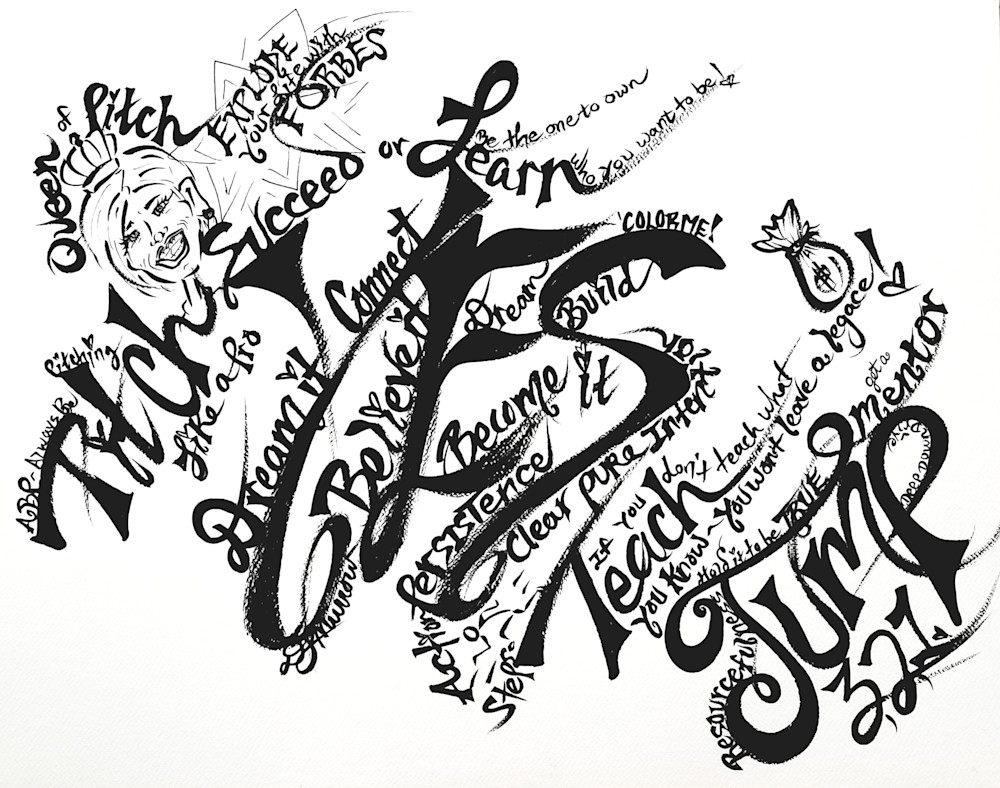 Queen of Pitch
EXPLODE
Your life with
FORBES
Succeed or Learn
Be the one to own
who you want to be!
COLOR ME!
YES
Connect
Dream
Build
Dream it
Believe it
Become it
Pitching
ABP-Always Be
Pitch
Like a Pro
Persistence
Clear Pure Intent
Action
Steps
Teach
If You don't teach what
You Know - You won't leave a legace!
Hold it to be TRUE
get a
mentor
Jump
Deep
Resourcefulness
3,2,1